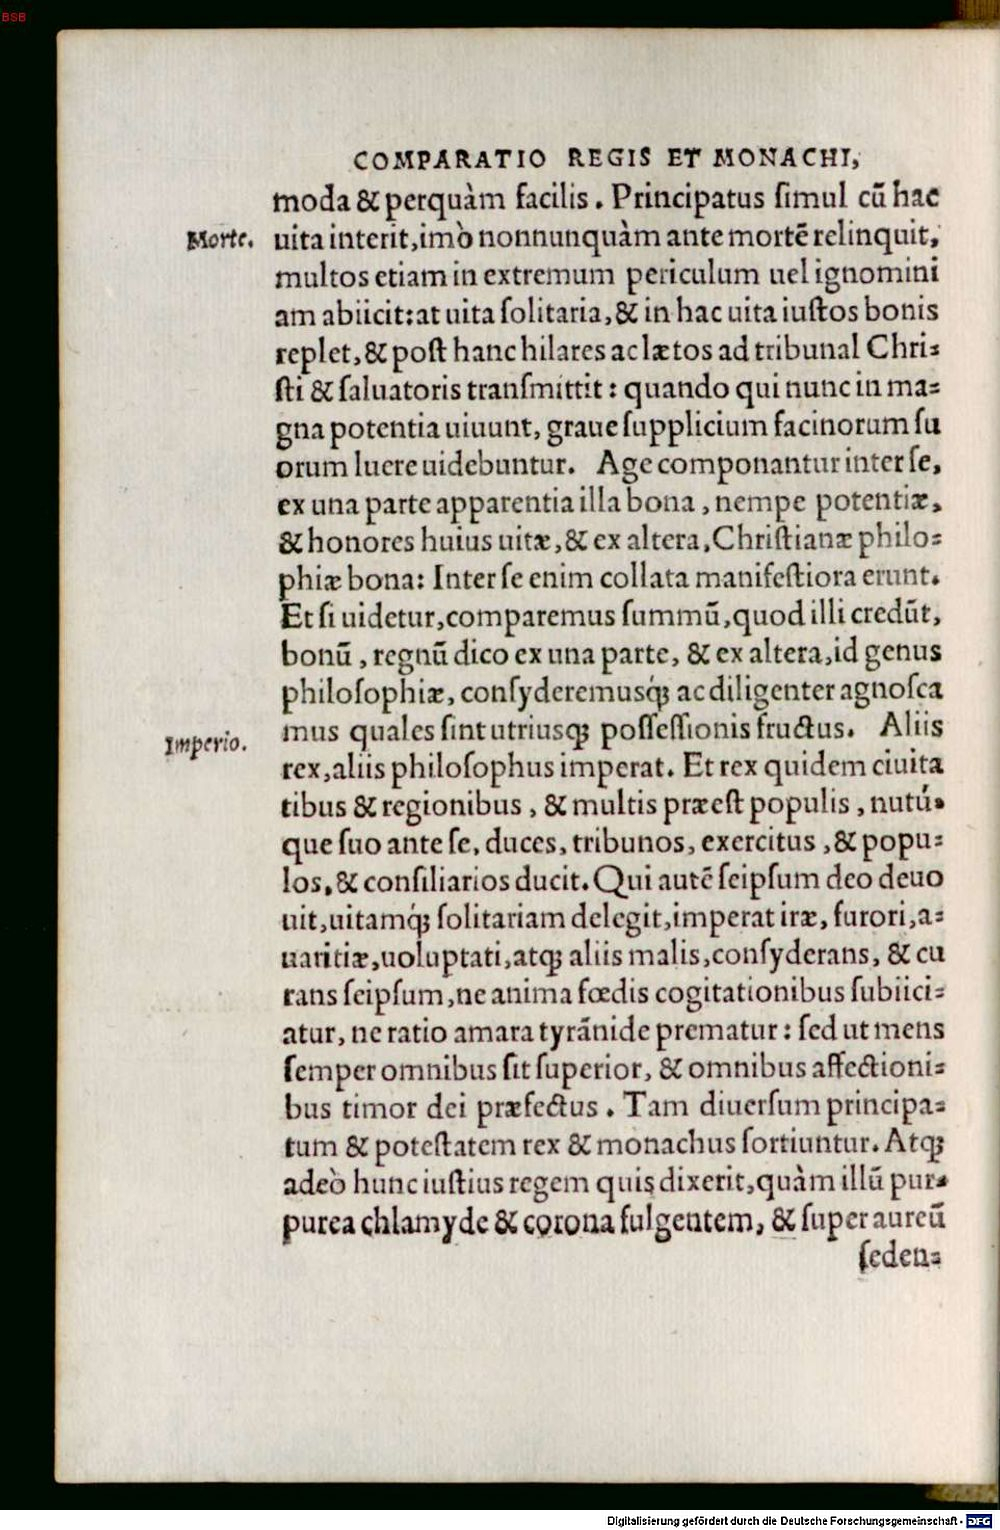 BSB
COMPARATIO REGIS ET MONACHI,
moda & perquàm facilis. Principatus ſimul cū hac
Morte.
uita interit, imò nonnunquàm ante mortē relinquit,
multos etiam in extremum periculum uel ignomini
am abiicit: at uita ſolitaria, & in hac uita iuſtos bonis
replet, & poſt hanc hilares ac lætos ad tribunal Chri=
ſti & ſaluatoris tranſmittit: quando qui nunc in ma=
gna potentia uiuunt, graue ſupplicium facinorum ſu
orum luere uidebuntur. Age componantur inter ſe,
ex una parte apparentia illa bona, nempe potentiæ,
& honores huius uitæ, & ex altera, Chriſtianæ philo=
phiæ bona: Inter ſe enim collata manifeſtiora erunt.
Et ſi uidetur, comparemus ſummū, quod illi credūt,
bonū, regnū dico ex una parte, & ex altera, id genus
philoſophiæ, conſyderemusq́; ac diligenter agnoſca
mus quales ſint utriusq; poſſeſſionis fructus. Aliis
Imperio.
rex, aliis philoſophus imperat. Et rex quidem ciuita
tibus & regionibus, & multis præeſt populis, nutú=
que ſuo ante ſe, duces, tribunos, exercitus, & popu=
los, & conſiliarios ducit. Qui autē ſeipſum deo deuo
uit, uitamq́; ſolitariam delegit, imperat iræ, furori, a=
uaritiæ, uoluptati, atq; aliis malis, conſyderans, & cu
rans ſeipſum, ne anima fœdis cogitationibus ſubiici=
atur, ne ratio amara tyrānide prematur: ſed ut mens
ſemper omnibus ſit ſuperior, & omnibus affectioni=
bus timor dei præfectus. Tam diuerſum principa=
tum & poteſtatem rex & monachus ſortiuntur. Atq;
adeò hunc iuſtius regem quis dixerit, quàm illū pur=
purea chlamyde & corona fulgentem, & ſuper aureū
ſeden=
Digitalisierung gefördert durch die Deutsche Forschungsgemeinschaft - DFG